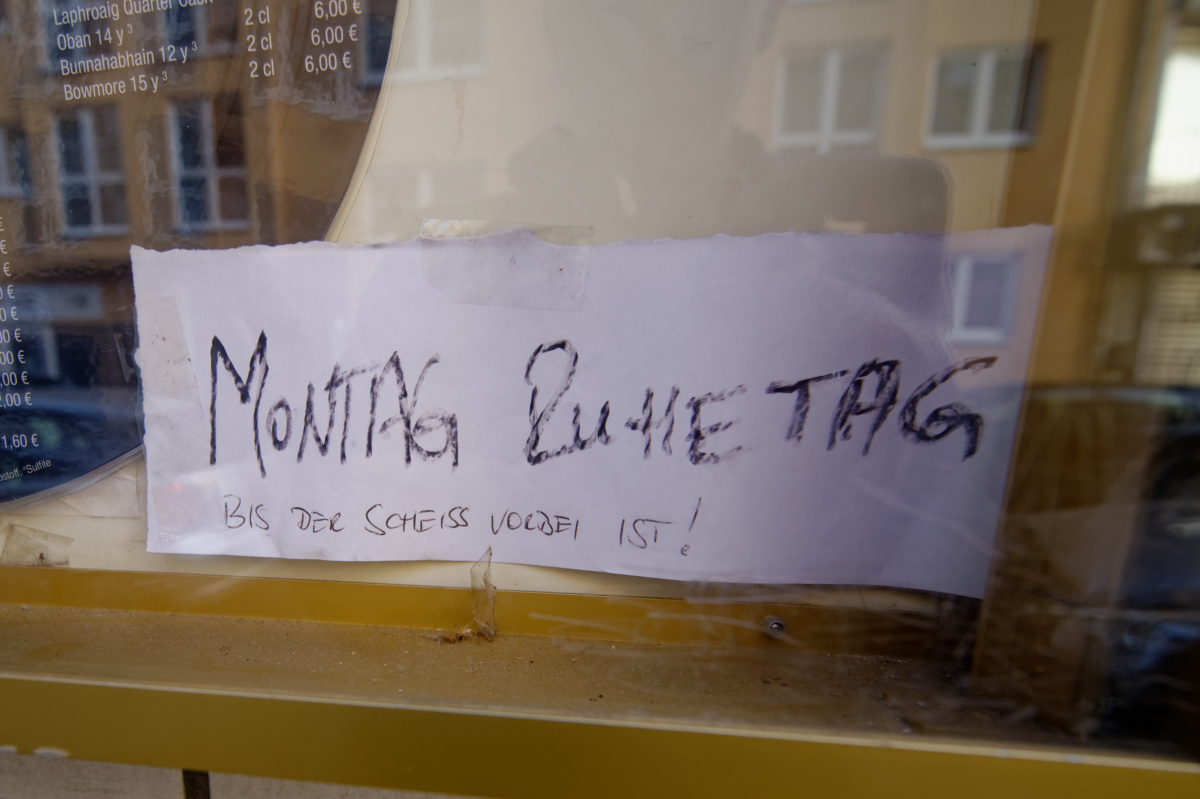 Laphroaig Quarter Cask 2 cl 6,00 €
Oban 14 y ³ 2 cl 6,00 €
Bunnahabhain 12 y ³ 2 cl 6,00 €
Bowmore 15 y ³
€
€
€
0 €
0 €
00 €
00 €
,00 €
2,00 €
1,60 €
MONTAG RUHETAG
BIS DER SCHEISS VORBEI IST!